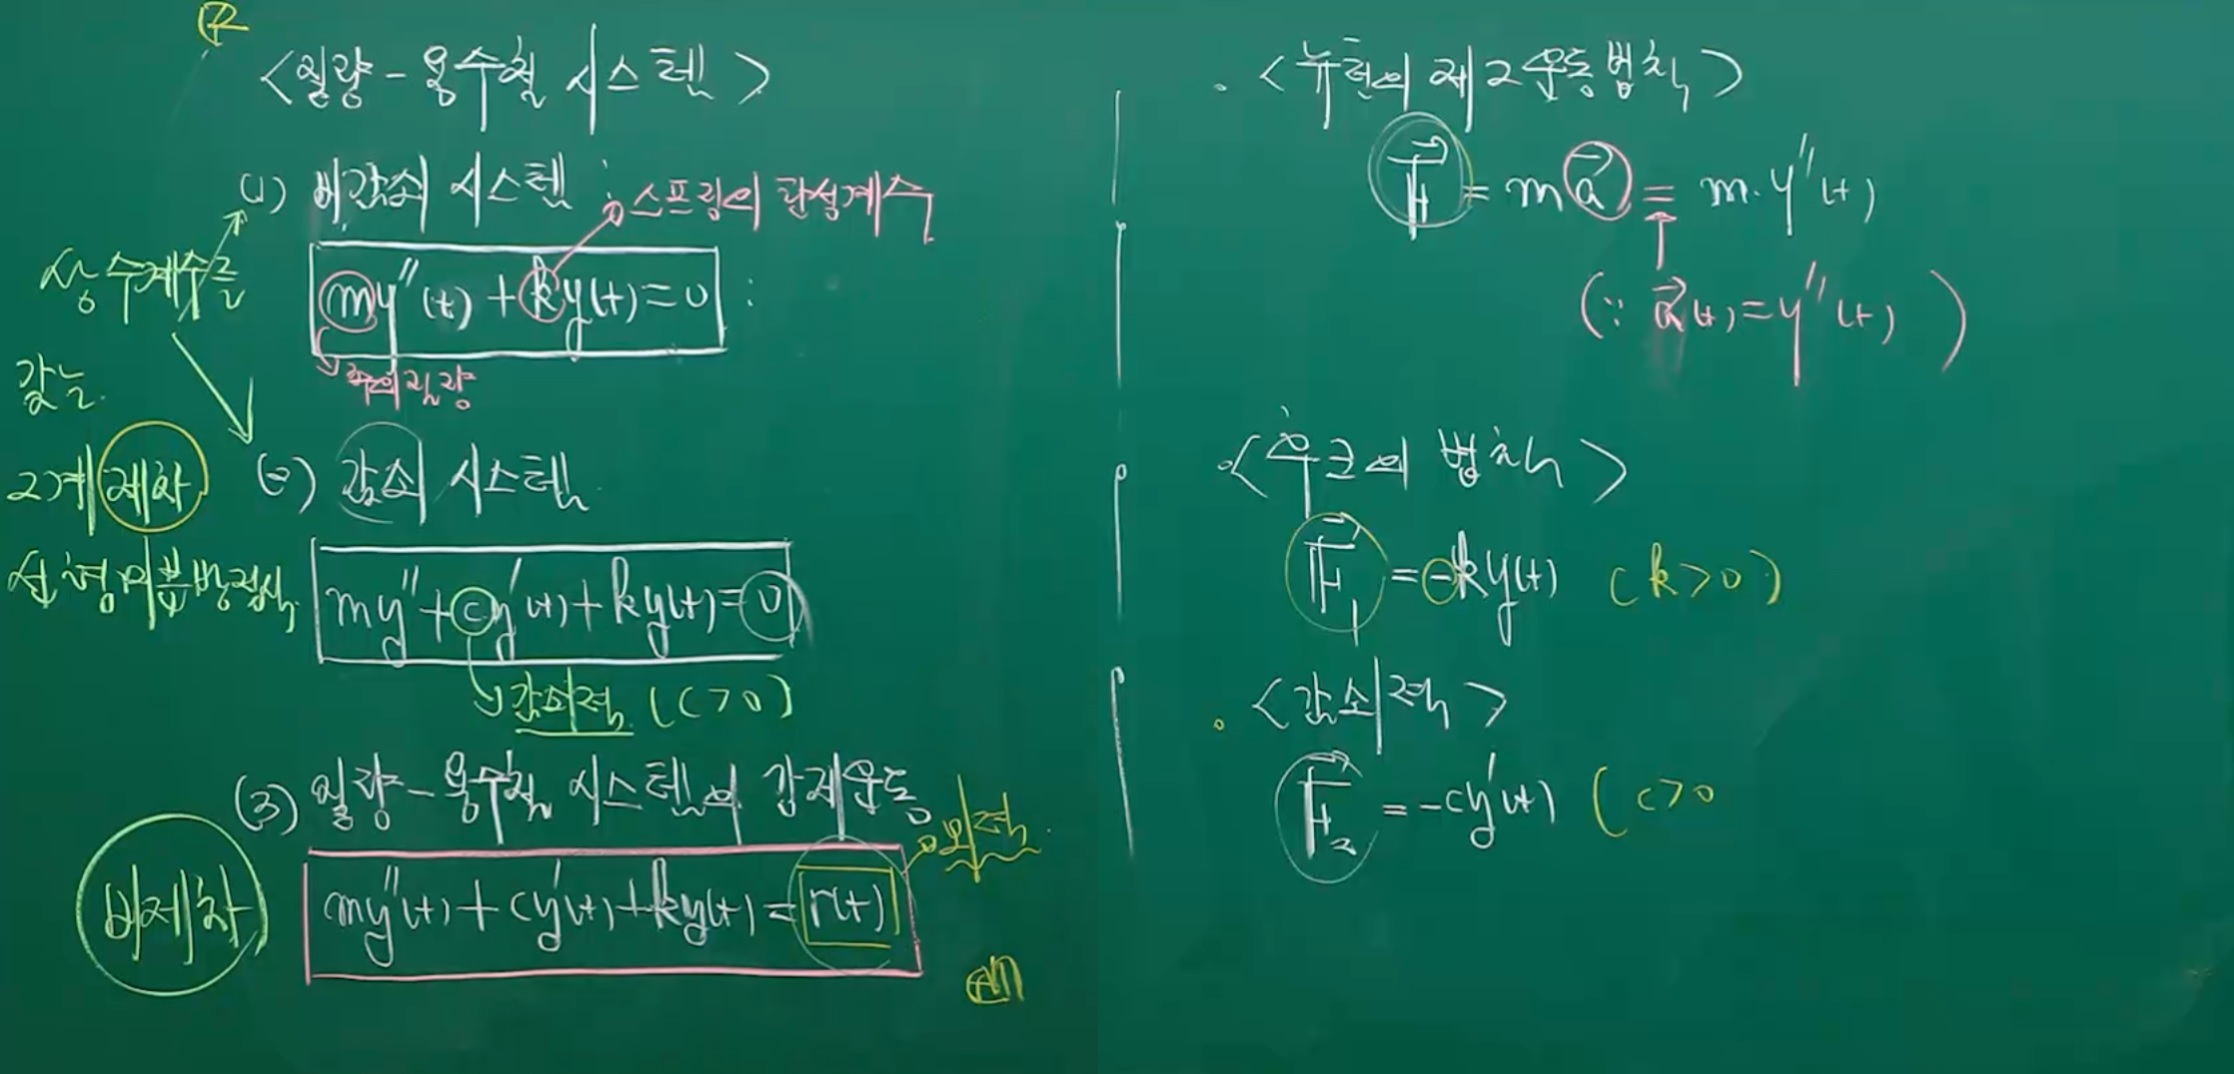 <질량-용수철 시스템>
(1) 비감쇠 시스템 :
스프링의 관성계수
my''(t) + ky(t) = 0 :
추의 질량
상수계수를
갖는
2계 제차
선형미분방정식
(2) 감쇠 시스템
my'' + cy'(t) + ky(t) = 0
감쇠력 (c>0)
(3) 질량-용수철 시스템의 강제운동
외력
비제차
my''(t) + cy'(t) + ky(t) = r(t)
<뉴턴의 제2운동법칙>
F = ma = m·y''(t)
(∵ a(t) = y''(t) )
<후크의 법칙>
F₁ = -ky(t) (k>0)
<감쇠력>
F₂ = -cy'(t) (c>0